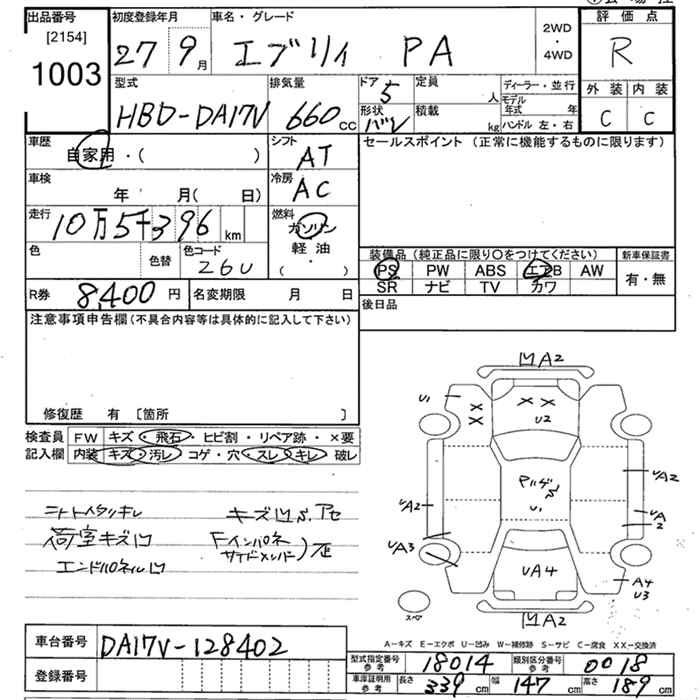 出品番号
[2154]
1003
初度登録年月
27 9月
車名・グレード
エブリィ PA
2WD
・
4WD
評価点
R
外装 内装
C C
型式
HBD-DA17V
排気量
660cc
ドア 5
形状 バン
定員
人
積載
kg
ディーラー・並行
モデル
年式 年
ハンドル 左・右
車歴
自家用・( )
シフト
AT
セールスポイント (正常に機能するものに限ります)
車検
年 月( 日)
冷房
AC
走行
10万5千396km
燃料
ガソリン
軽油
( ・ )
色
色替
色コード
Z6U
装備品 (純正品に限り○をつけてください)
新車保証書
PS PW ABS エアB AW
SR ナビ TV カワ
有・無
R券 8,400円
名変期限 月 日
後日品
注意事項申告欄(不具合内容等は具体的に記入して下さい)
修復歴 有 [箇所 ]
検査員
記入欄
FW キズ・飛石・ヒビ割・リペア跡・×要
内装 キズ・汚レ コゲ・穴・スレ・キレ 破レ
荷室キズ凹
エンドパネル凹
キズ凹
Fインパネ
サイドメンバー
凹A2
U1
U2
U1
UA2
UA2
UA
2
UA3
UA4
A4
U3
スペア
凹A2
A-キズ E-エクボ U-凹み W-補修跡 S-サビ C-腐食 XX-交換済
車台番号
DA17V-128402
登録番号
型式指定番号
参考
18014
類別区分番号
参考
0018
車庫証明用
参考
長さ 339cm 幅 147cm 高さ 189cm